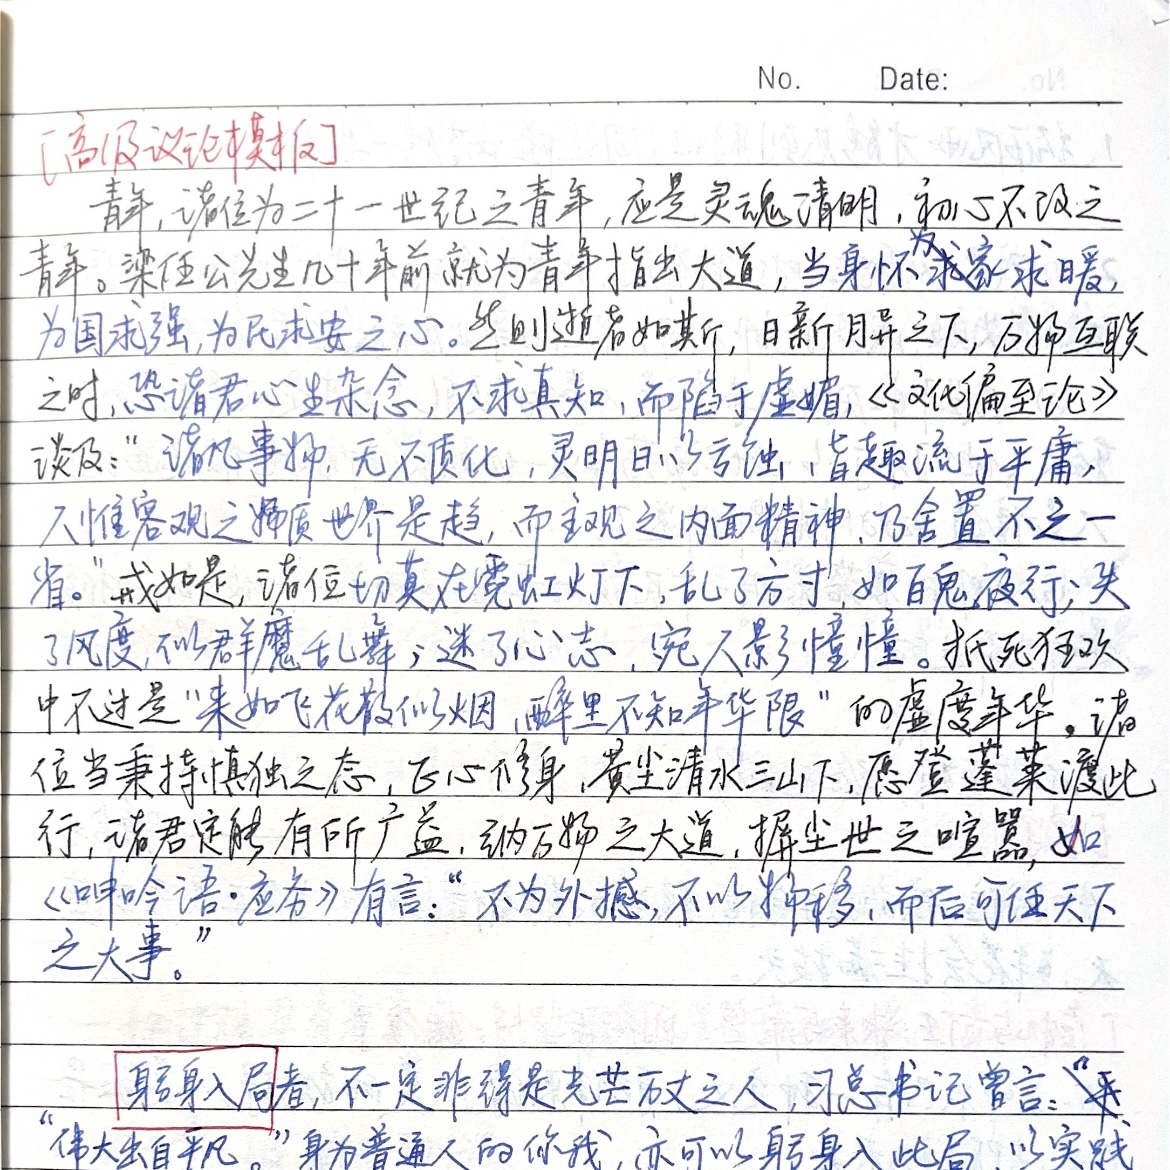 No. Date:
[高级议论模板]
青年,诸位为二十一世纪之青年,应是灵魂清明,初心不改之
青年。梁任公先生几十年前就为青年指出大道,当身怀为家求暖,
为国求强,为民求安之心。然则逝者如斯,日新月异之下,万物互联
之时,恐诸君心生杂念,不求真知,而陷于虚媚,《文化偏至论》
谈及:“诸凡事物,无不质化,灵明日以亏蚀,皆趣流于平庸,
人惟客观之物质世界是趋,而主观之内面精神,乃舍置不之一
省。”戒如是,诸位切莫在霓虹灯下,乱了方寸,如百鬼夜行;失
了风度,似群魔乱舞;迷了心志,宛人影幢幢。抵死狂欢
中不过是“来如飞花散似烟,醉里不知年华限”的虚度年华。诸
位当秉持慎独之态,正心修身,黄尘清水三山下,愿登蓬莱渡此
行,诸君定能有所广益,纳万物之大道,摒尘世之喧嚣,如
《呻吟语·应务》有言:“不为外撼,不以物移,而后可任天下
之大事。”
躬身入局者,不一定非得是光芒万丈之人,习总书记曾言:
“伟大出自平凡。”身为普通人的你我,亦可以躬身入此局,以实践